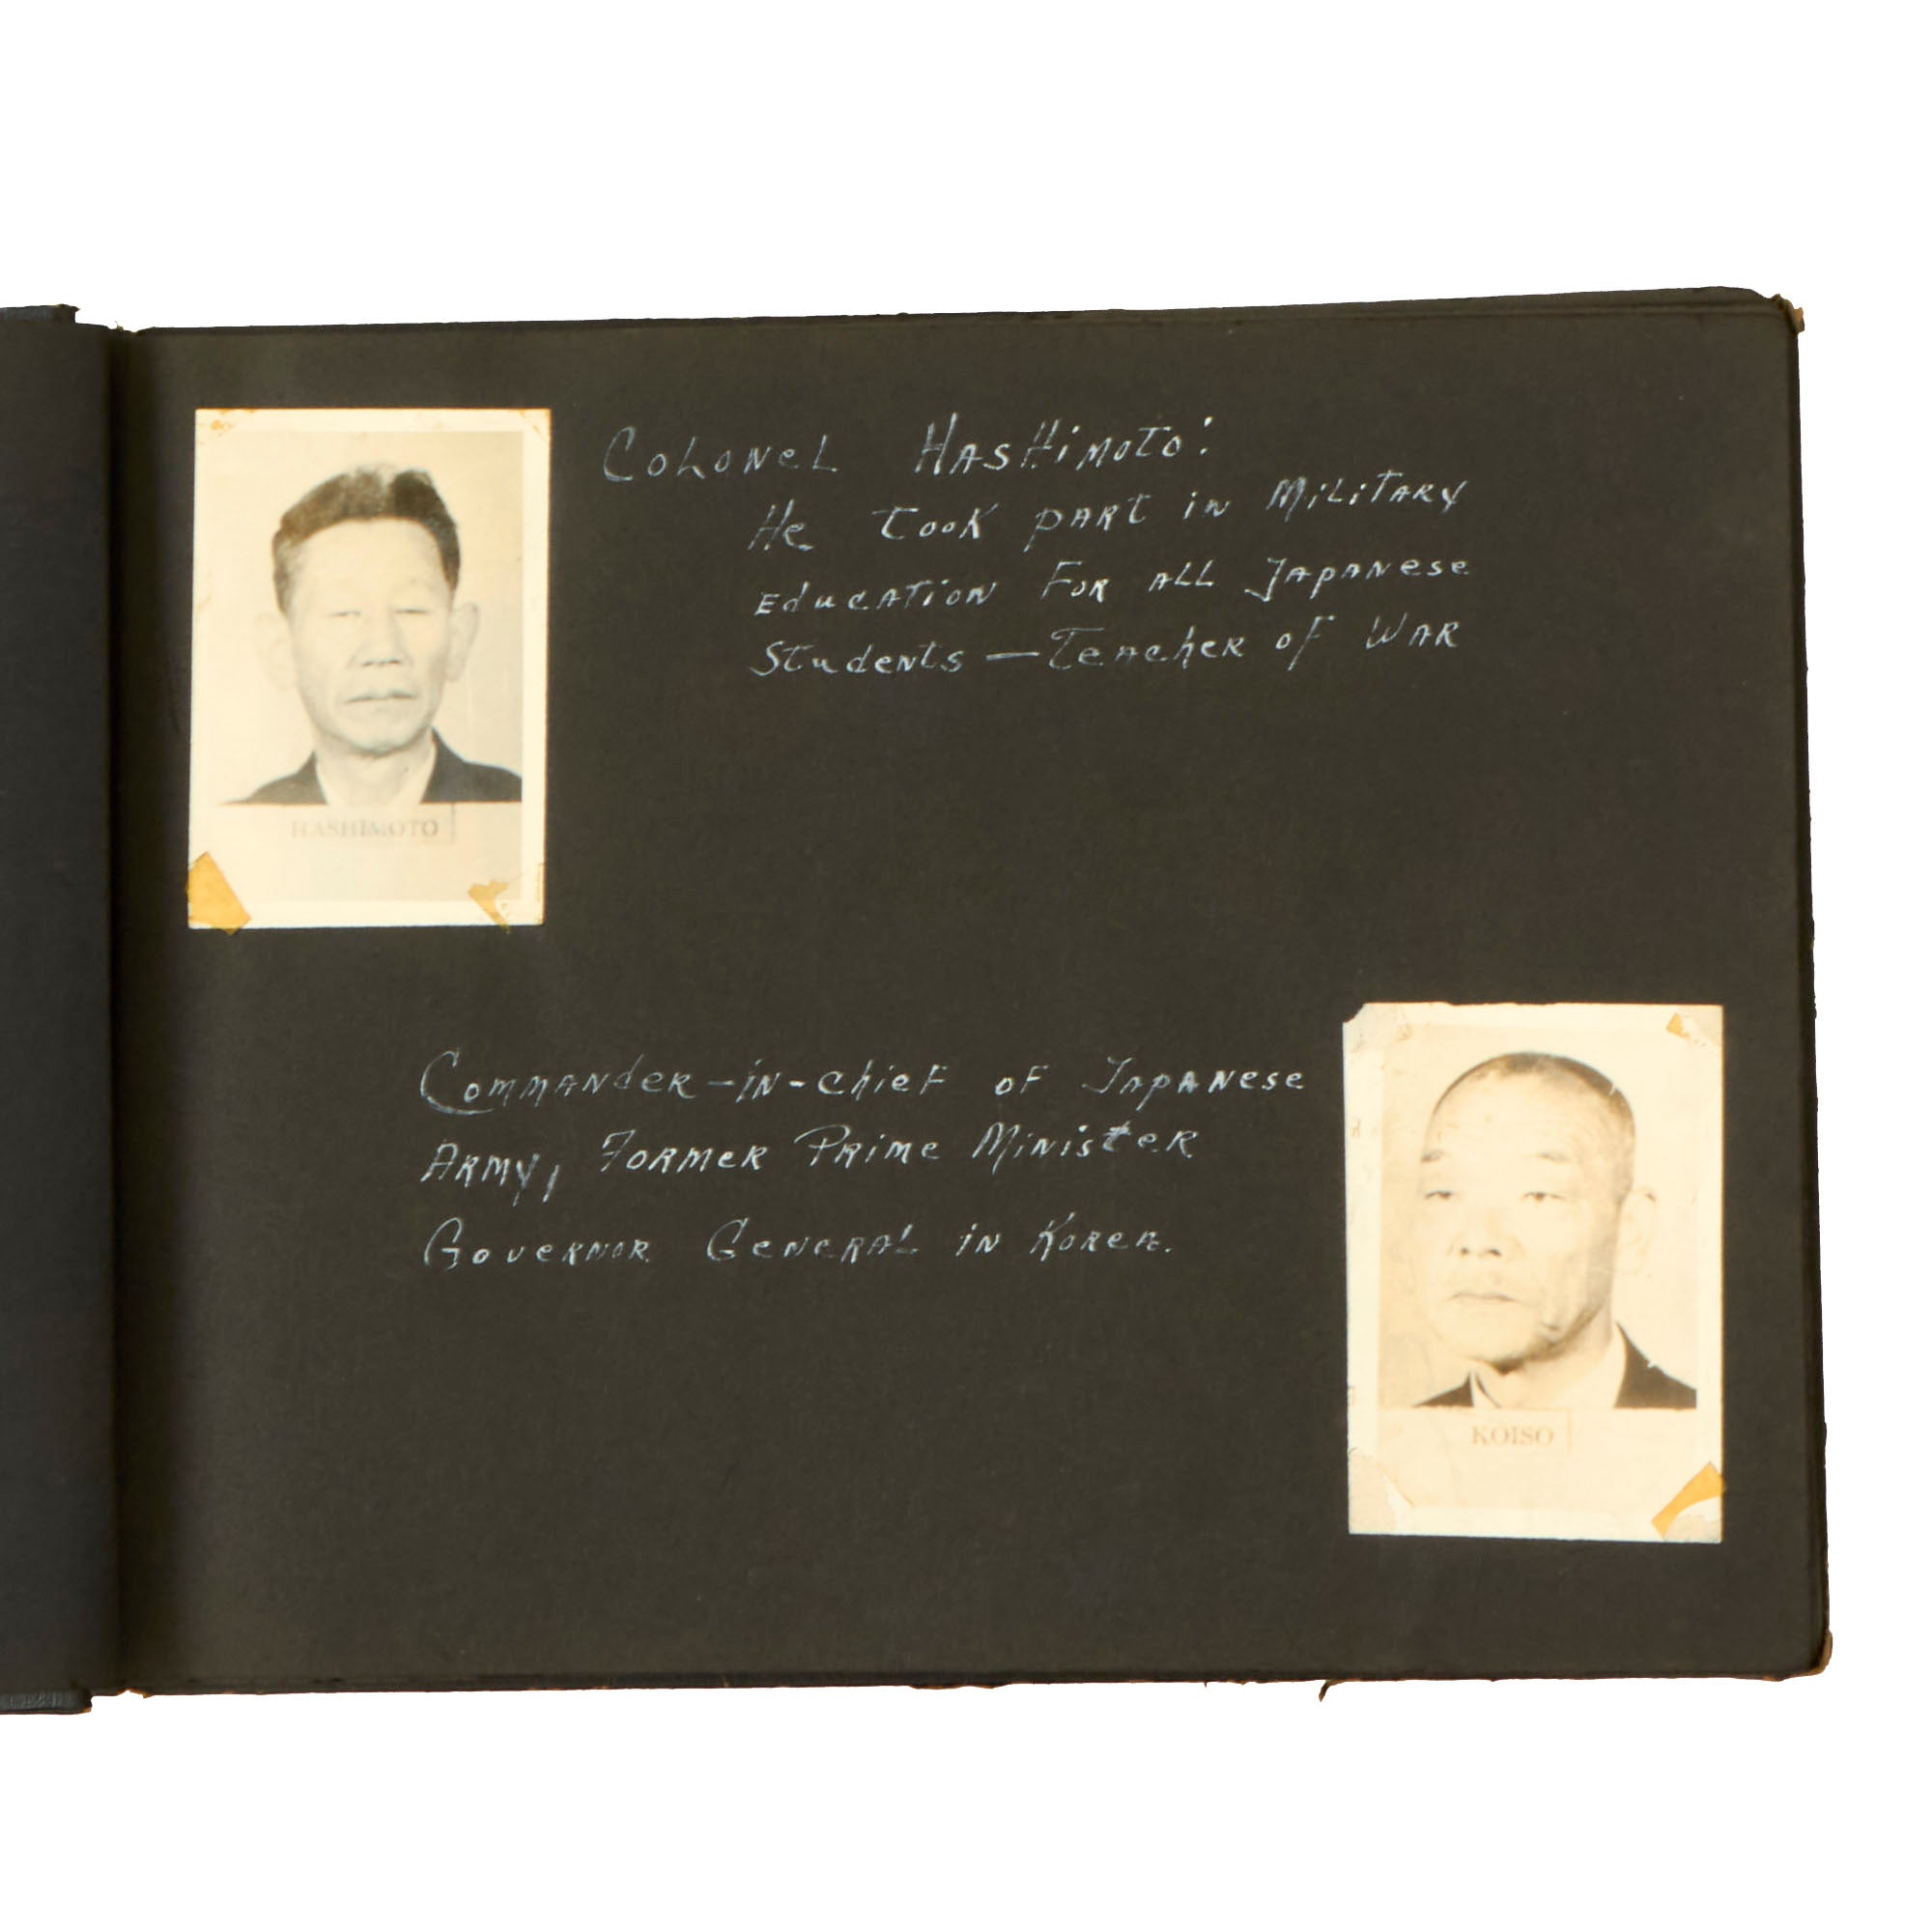 Colonel Hashimoto:
He took part in Military
education For all Japanese
Students — Teacher of War
HASHIMOTO
Commander-in-chief of Japanese
Army, Former Prime Minister
Governor General in Korea.
KOISO